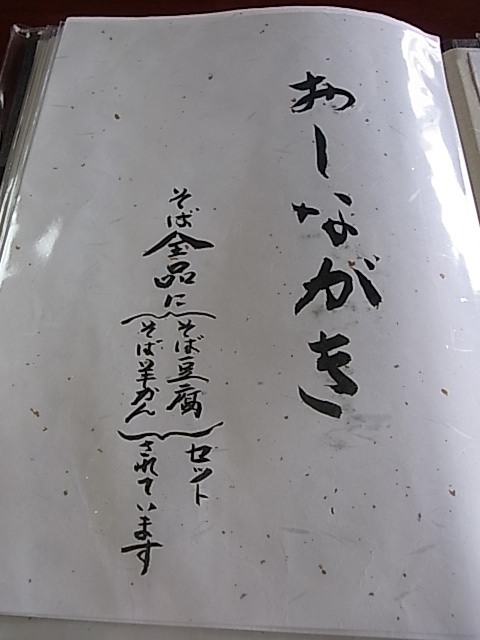 おしながき
そば全品に
そば豆腐
そば羊かん
セット
されています